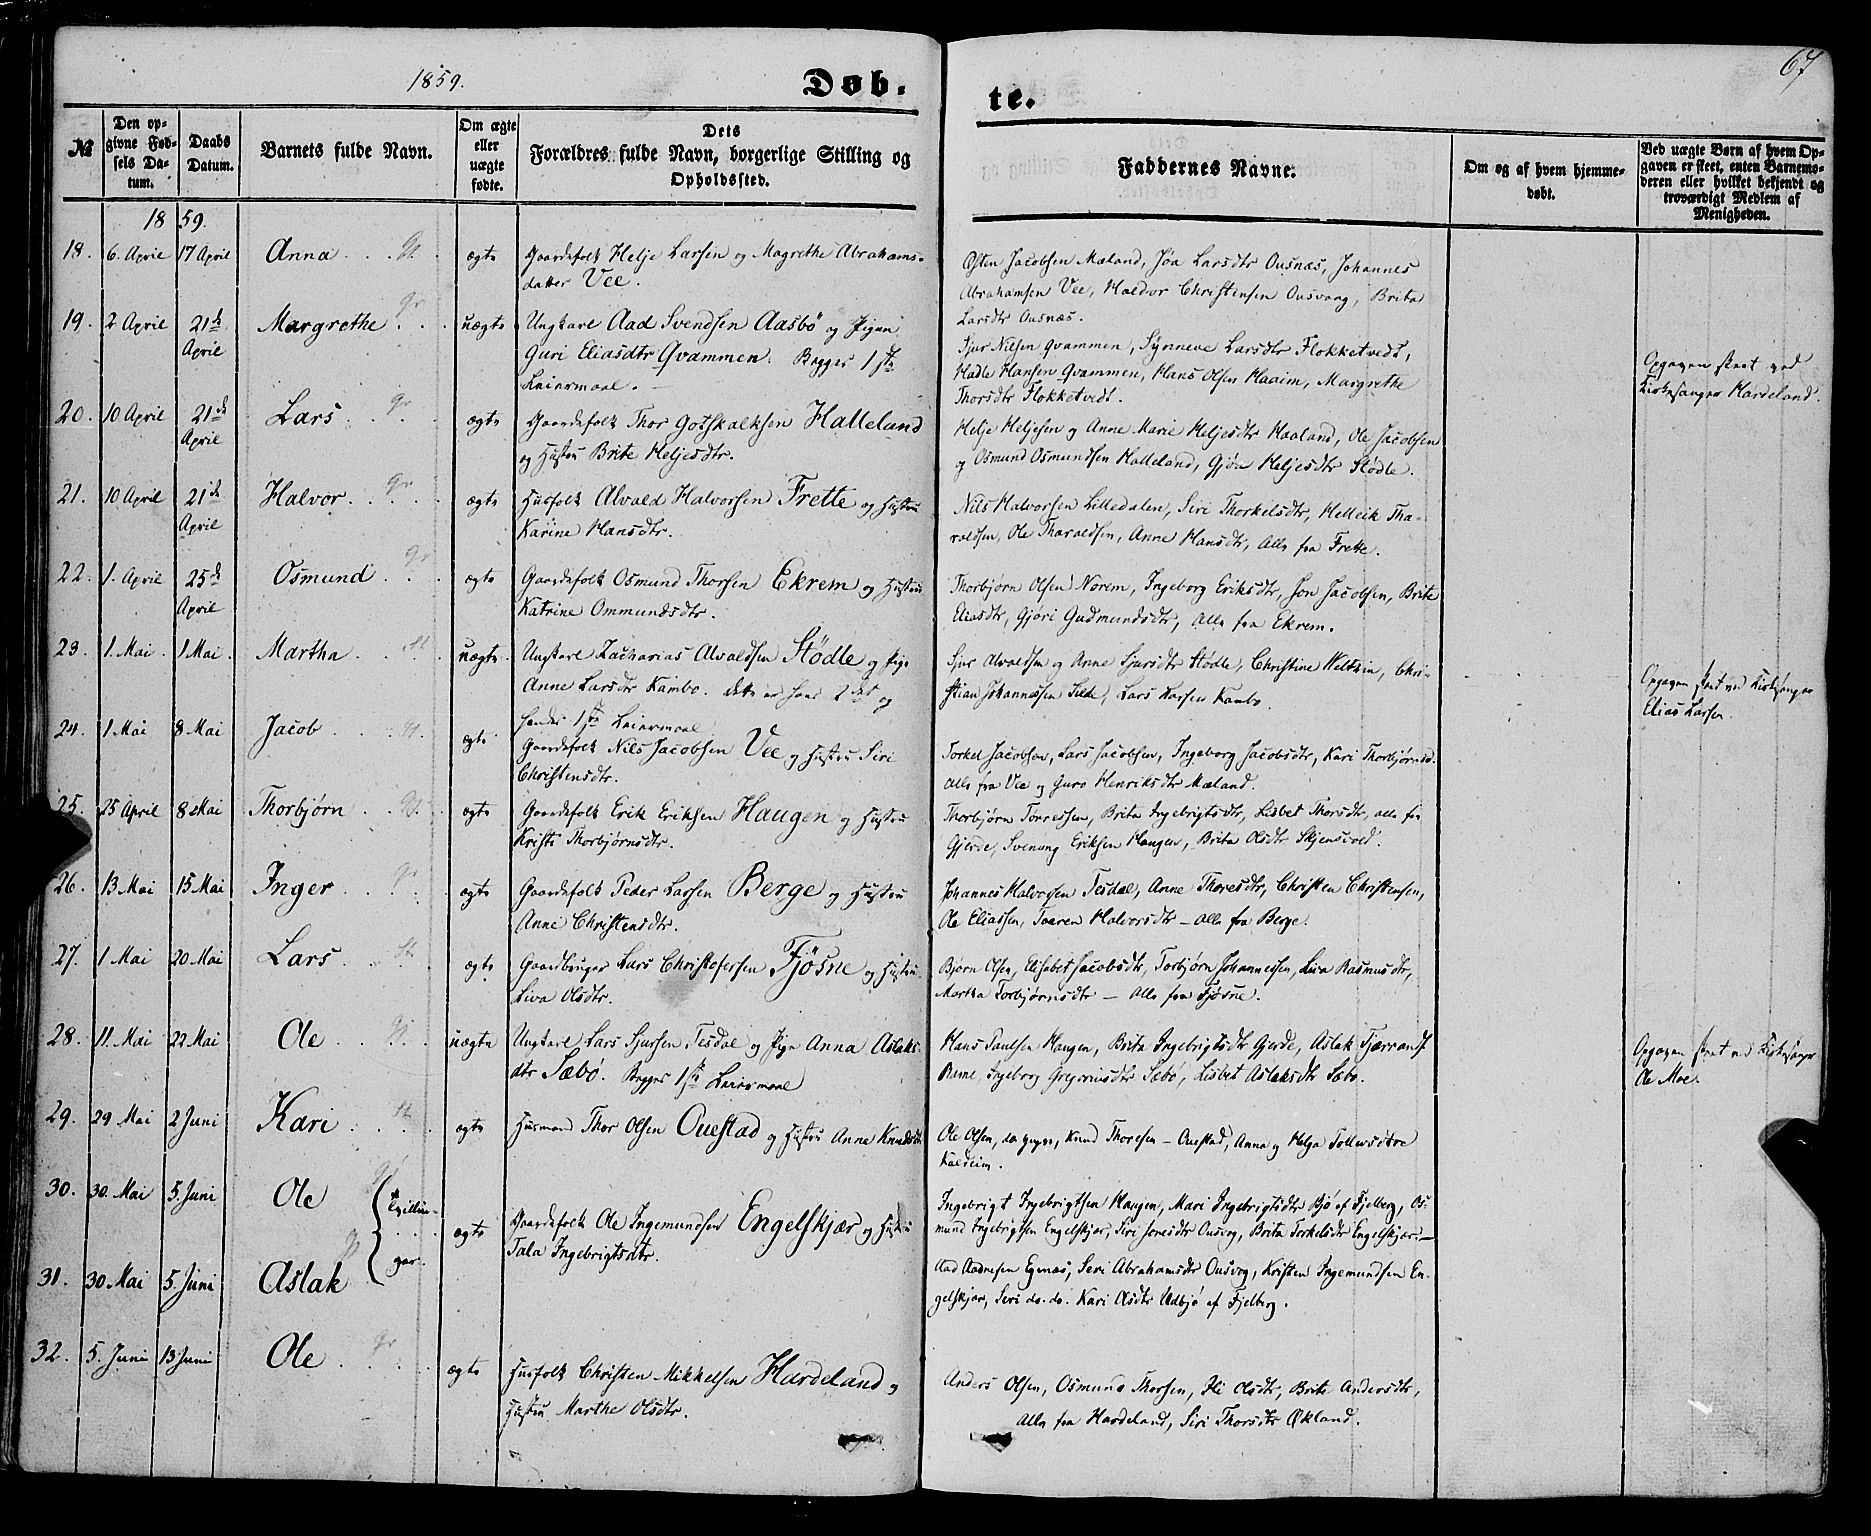 1859. Døb. te. 67
№
Den op-
givne Fød-
sels Da-
tum.
Daabs
Datum.
Barnets fulde Navn.
Om ægte
eller
uægte
fødte.
Dets
Forældres fulde Navn, borgerlige Stilling og
Opholdssted.
Faddernes Navne.
Om og af hvem hjemme-
døbt.
Ved uægte Børn af hvem Op-
gaven er skeet, enten Barnemo-
deren eller hvilket bekjendt og
troværdigt Medlem af
Menigheden.
1859.
18. 6. April 17 April Anna ægte Gaardefolk Helje Larsen og Magrethe Abrahams-
datter Vee.
Østen Jacobsen Mæland, Joa Larsdtr Ousnæs, Johannes
Abrahamsen Vee, Haldor Christensen Ousvaag, Brita
Larsdtr Ousnæs.
19. 2 April 21de
April
Margrethe uægte Ungkare Aad Svendsen Aasbø og Pigen
Guri Eliasdtr Qvammen. Begges 1ste
Leiermaal.
Sjur Nilsen Qvammen, Synneve Larsdtr Flokketvedt,
Hadle Hansen Qvammen, Hans Olsen Haaim, Margrethe
Thorsdtr Flokketvedt.
Opgaven skeet ved
Kirkesanger Hardeland.
20. 10 April 21de
April
Lars ægte Gaardefolk Thor Gotskalksen Halleland
og Hustru Brite Heljesdtr.
Helje Heljesen og Anne Marie Heljesdtr Haaland, Ole Jacobsen
og Osmund Osmundsen Halleland, Gjøa Heljesdtr Stødle.
21. 10 April 21de
April
Halvor ægte Husfolk Alvald Halvorsen Frette og Hustru
Karine Hansdtr.
Nils Halvorsen Lilledalen, Siri Thorkelsdtr, Helleik Tha-
raldsen, Ole Tharaldsen, Anne Hansdtr, Alle fra Frette.
22. 1. April 25de
April
Osmund ægte Gaardefolk Osmund Thorsen Ekrem og Hustru
Katrine Ommundsdtr.
Thorbjørn Olsen Norem, Ingeborg Eriksdtr, Jon Jacobsen, Brite
Eliasdtr, Gjøri Gudmundsdtr, Alle fra Ekrem.
23. 1. Mai. 1. Mai. Martha uægte. Ungkare Zacharias Alvaldsen Stødle og Pige
Anne Larsdtr Kambo. Dette er hans 2det og
hendes 1ste Leiermaal
Sjur Alvaldsen og Anne Sjursdtr Stødle, Christine Weltzin, Chri-
stian Johannessen Silde, Lars Larsen Kambo.
Opgaven skeet ved Kirkesanger
Elias Larsen.
24. 1 Mai 8 Mai Jacob ægte Gaardefolk Nils Jacobsen Vee og Hustru Siri
Christensdtr.
Torkel Jacobsen, Lars Jacobsen, Ingeborg Jacobsdtr, Kari Thorbjørnsd.
Alle fra Vee og Guro Henriksdtr Mæland.
25. 25 April 8 Mai Thorbjørn ægte Gaardefolk Erik Eriksen Haugen og Hustru
Kristi Thorbjørnsdtr.
Thorbjørn Torressen, Brita Ingebrigtsdtr, Lisbet Thorsdtr, alle fra
Gjerde, Svenung Eriksen Haugen, Brita Olsdtr Skjensvold.
26. 13 Mai 15 Mai Inger ægte Gaardefolk Peder Larsen Berge og Hustru
Anne Christensdtr.
Johannes Halvorsen Tesdal, Anne Thoresdtr, Christen Christensen,
Ole Eliassen, Taaren Halvorsdtr – alle fra Berge.
27. 1 Mai 20 Mai Lars ægte Gaardbruger Lars Christofersen Fjøsne og Hustru
Liva Olsdtr.
Bjørn Olsen, Elisabet Jacobsdtr, Torbjørn Johannessen, Liva Rasmusdtr,
Martha Torbjørnsdtr – Alle fra Fjøsne.
28. 11. Mai 22 Mai Ole uægte Ungkare Lars Sjursen Tesdal og Pige Anna Aslaks-
dtr Sæbø. Begges 1ste Leiermaal
Hans Paulsen Haugen, Brita Ingebrigtsdtr Gjerde, Aslak
Rame, Ingeborg Sæbø, Lisbet Aslaksdtr Sæbø.
Opgaven skeet ved Kirkesanger
Ole Moe.
29. 29 Mai 2 Juni Kari ægte Husmand Thor Olsen Ouestad og Hustru Anne Knudsdtr
Ole Olsen, Knud Thoresen – Ouestad, Anna og Helga Tollevsdtre
Kaldeim.
30. 30. Mai 5. Juni Ole Tvillin-
ægte Gaardefolk Ole Ingemundsen Engelskjær og Hustru
Tala Ingebrigtsdtr.
Ingebrigt Ingebrigtsen Haugen, Mari Ingebrigtsdtr Bjø af Fjelberg, Os-
mund Ingebrigtsen Engelskjær, Siri Jonesdtr Ousvog, Brita Torkelsdtr Engelskjær. –
31. 30 Mai 5. Juni Aslak ger
Aad Aadnesen Egenæs, Seri Abrahamsdtr Ousvog, Kristen Ingemundsen En-
gelskjær, Seri do. do. Kari Olsdtr Udbjø af Fjelberg.
32. 5. Juni 13 Juni Ole ægte Husfolk Christen Mikkelsen Hardeland og
Hustru Marthe Olsdtr.
Anders Olsen, Osmund Thorsen, Eli Olsdtr, Brite Andersdtr,
Alle fra Hardeland, Siri Thorsdtr Økland.